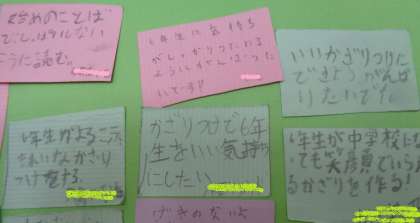 始めのことば
でしっぱいしない
ように読む。
6年生に気持ち
がしっかりつたわる
ようにがんばった
いです!!
いいかざりつけに
できるようがんば
りたいです
6年生がよろこぶ
きれいなかざり
つけをする。
かざりつけで6年
生をいい気持ち
にしたい
6年生が中学校に
いっても笑顔でいられ
るかざりを作る!
げきのないよ